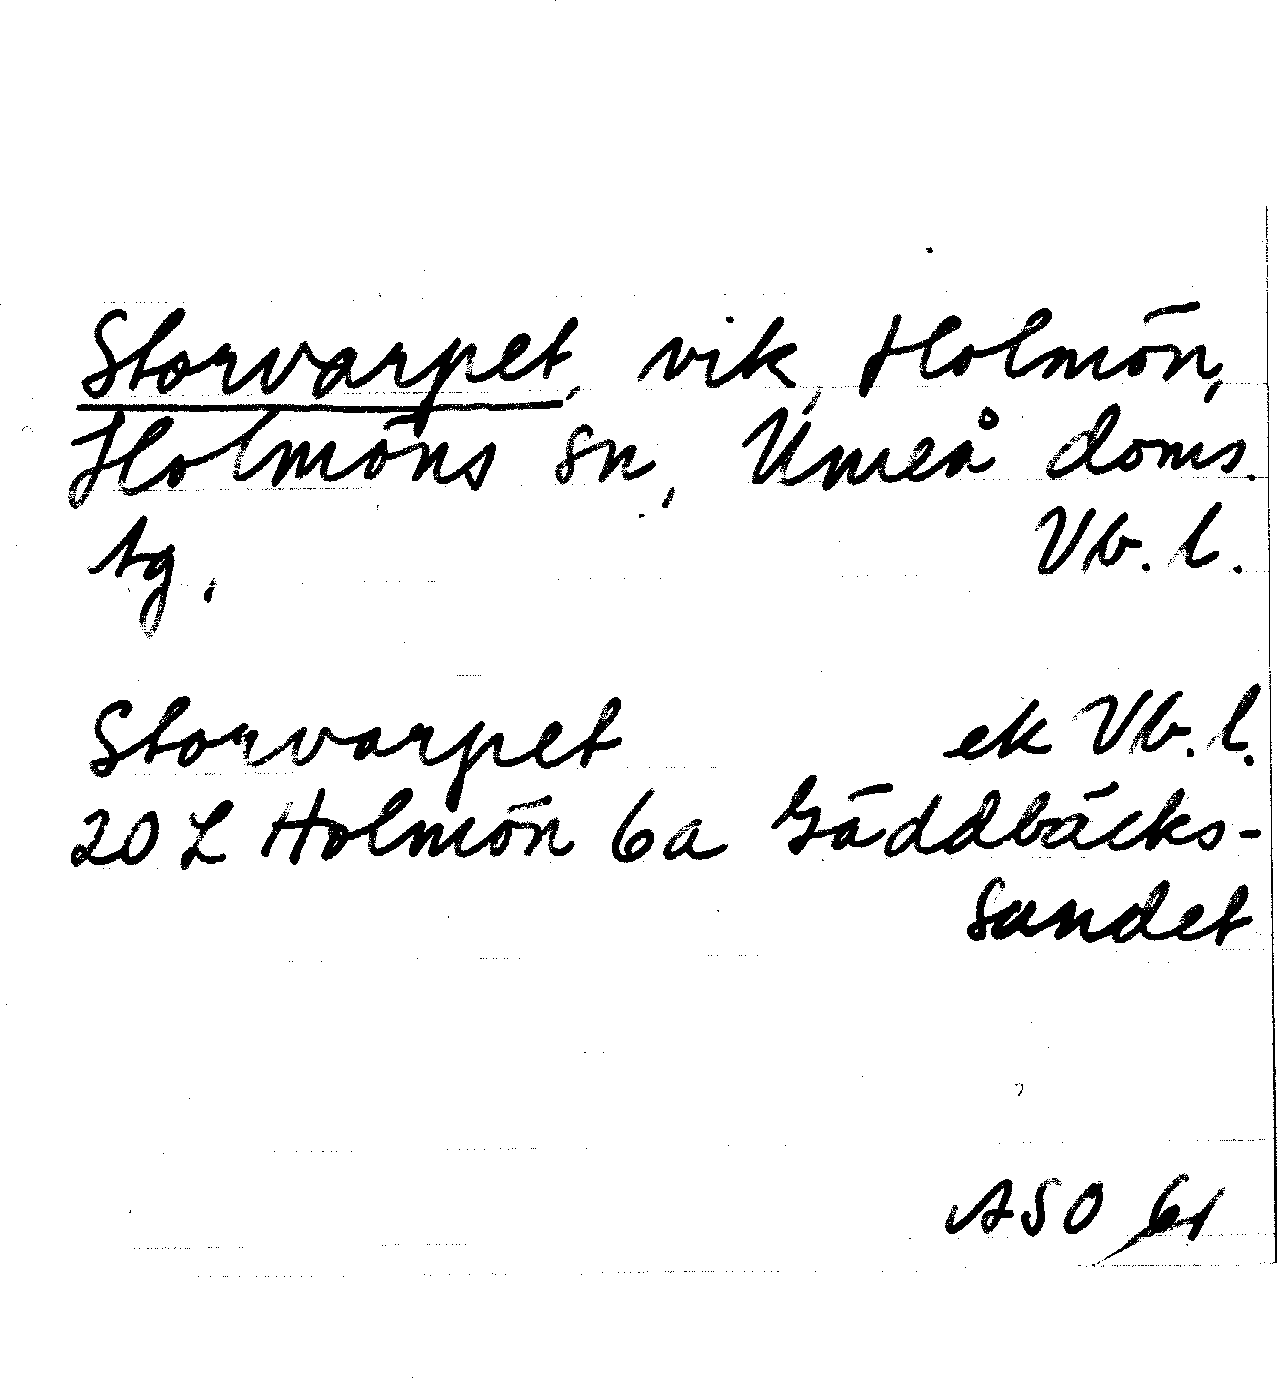 Storvarpet, vik, Holmön,
Holmöns sn, Umeå doms.
tg. Vb. l.
Storvarpet ek Vb. l.
20 L Holmön 6a Gäddbäcks-
sundet
ASO 61